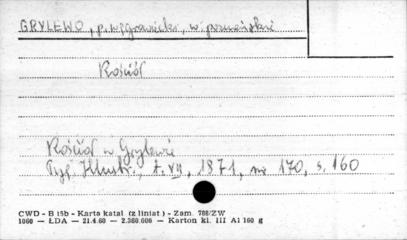 GRYLEWO, p. wągrowiecki, w. poznańskie
Kościół
Kościół w Grylewie
Tyg. Illustr., t. VII, 1871, nr 170, s. 160
CWD - B 15b - Karta katal. (z liniat) - Zam. 788/ZW
1060 — ŁDA — 21.4.60 — 2.360.000 — Karton kl. III A1 160 g